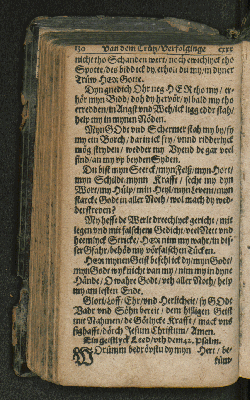 130 Van dem Crütz/Verfolginge
nicht tho Schanden wert/ noch ewichlyck tho
Spotte/ des bidd ick dy/ erholt du my/ in dyner
Trüw HER Godt.
Dyn gnedich Ohr neg HER tho my/ er-
hör myn Bidd/ doh dy hervör/ yl bald my tho
erredden/ in Angst und Weh/ ick ligg edder stah/
help my in mynen Nöden.
Myn GOdt und Schermer stah my by/ sy
my ein Borch/ darin ick fry/ und ridderlyck
mög stryden/ wedder my Vyend de gar veel
sind/ an my up beyden Syden.
Du bist myn Sterck/ myn Felß/ myn Hort/
myn Schildt/ mynn Krafft/ sech my dyn
Wort/ my Hülp/ min Heyl/ myn Leven/ myn
starcke Godt in aller Noth/ wol mach dy wed-
derstreven?
My hefft de Werlt drechlyck gericht/ mit
legen und mit falschem Gedicht/ veel Nett und
heemlyck Stricke/ Herr nim my wahr/ in dis-
ser Gfahr/ behöd my vör falschen Tücken.
HErr mynen Geist befehl ick dy/ myn Godt/
myn Godt wyk nicht van my/ nim my in dyne
Hände/ O wahre Godt/ uth aller Noth/ help
my am lesten Ende.
Glori/ Loff/ Ehr/ und Herlicheit/ sy GOdt
Vadr und Söhn bereit/ dem hilligen Geist
mit Nahmen/ de Götlycke Krafft/ mack uns
sighafft/ dörch Jesum Christum/ Amen.
Ein geistlyck Leed/ uth dem 42. Psalm.
WOrüm bedrövstu dy myn Hert/ be-
küm-